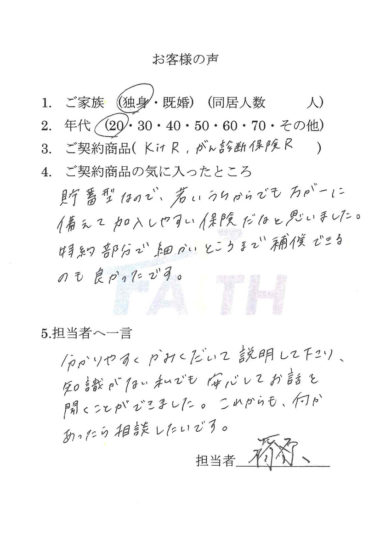 お客様の声
1. ご家族 (独身・既婚) (同居人数　　人)
2. 年代 (20・30・40・50・60・70・その他)
3. ご契約商品( Kit R, がん診断保険R )
4. ご契約商品の気に入ったところ
貯蓄型なので、若いうちからでも万が一に
備えて加入しやすい保険だなと思いました。
特約部分で細かいところまで補償できる
のも良かったです。
FAITH
5.担当者へ一言
分かりやすくかみくだいて説明して下さり、
知識がない私でも安心してお話を
聞くことができました。これからも、何か
あったら相談したいです。
担当者